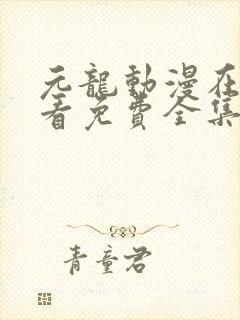 元龍動漫在
看免費全集
青童君